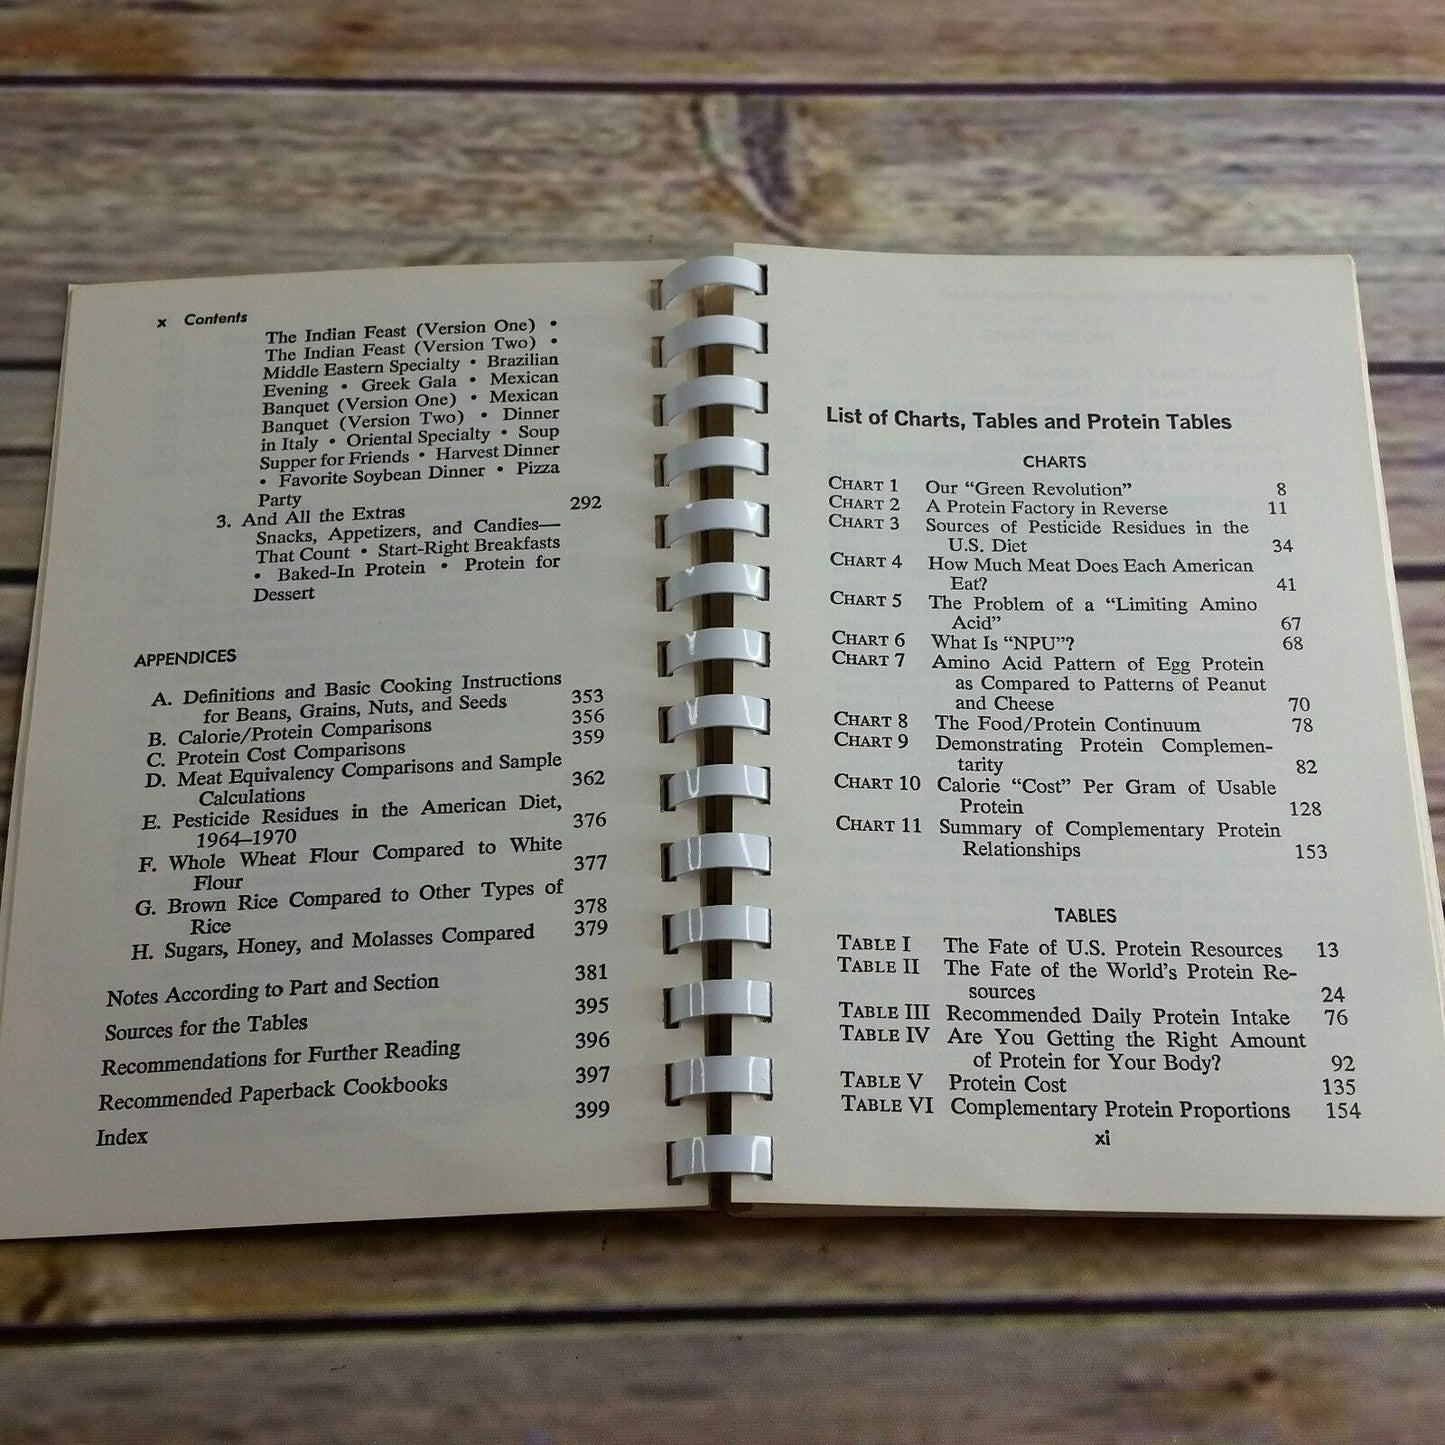 x Contents
The Indian Feast (Version One) •
The Indian Feast (Version Two) •
Middle Eastern Specialty • Brazilian
Evening • Greek Gala • Mexican
Banquet (Version One) • Mexican
Banquet (Version Two) • Dinner
in Italy • Oriental Specialty • Soup
Supper for Friends • Harvest Dinner
• Favorite Soybean Dinner • Pizza
Party
3. And All the Extras 292
Snacks, Appetizers, and Candies—
That Count • Start-Right Breakfasts
• Baked-In Protein • Protein for
Dessert
APPENDICES
A. Definitions and Basic Cooking Instructions
for Beans, Grains, Nuts, and Seeds 353
B. Calorie/Protein Comparisons 356
C. Protein Cost Comparisons 359
D. Meat Equivalency Comparisons and Sample
Calculations 362
E. Pesticide Residues in the American Diet,
1964–1970 376
F. Whole Wheat Flour Compared to White
Flour 377
G. Brown Rice Compared to Other Types of
Rice 378
H. Sugars, Honey, and Molasses Compared 379
Notes According to Part and Section 381
Sources for the Tables 395
Recommendations for Further Reading 396
Recommended Paperback Cookbooks 397
Index 399
List of Charts, Tables and Protein Tables
CHARTS
CHART 1 Our “Green Revolution” 8
CHART 2 A Protein Factory in Reverse 11
CHART 3 Sources of Pesticide Residues in the
U.S. Diet 34
CHART 4 How Much Meat Does Each American
Eat? 41
CHART 5 The Problem of a “Limiting Amino
Acid” 67
CHART 6 What Is “NPU”? 68
CHART 7 Amino Acid Pattern of Egg Protein
as Compared to Patterns of Peanut
and Cheese 70
CHART 8 The Food/Protein Continuum 78
CHART 9 Demonstrating Protein Complemen-
tarity 82
CHART 10 Calorie “Cost” Per Gram of Usable
Protein 128
CHART 11 Summary of Complementary Protein
Relationships 153
TABLES
TABLE I The Fate of U.S. Protein Resources 13
TABLE II The Fate of the World’s Protein Re-
sources 24
TABLE III Recommended Daily Protein Intake 76
TABLE IV Are You Getting the Right Amount
of Protein for Your Body? 92
TABLE V Protein Cost 135
TABLE VI Complementary Protein Proportions 154
xi